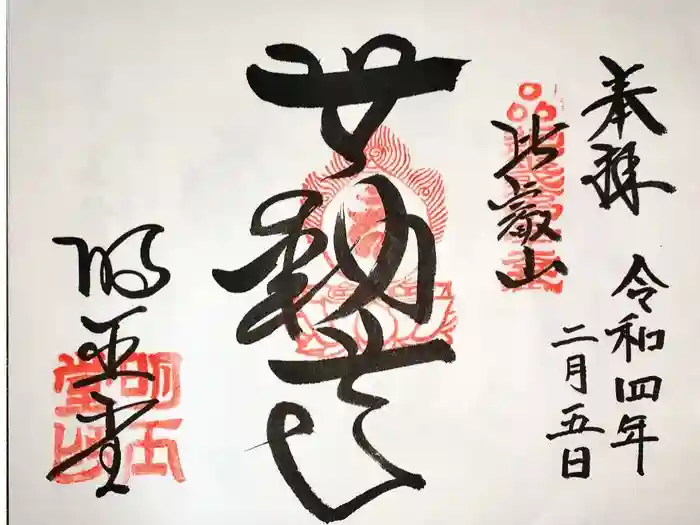 奉拝
令和四年
二月五日
比叡山
無動尊
明王堂
明王
堂印